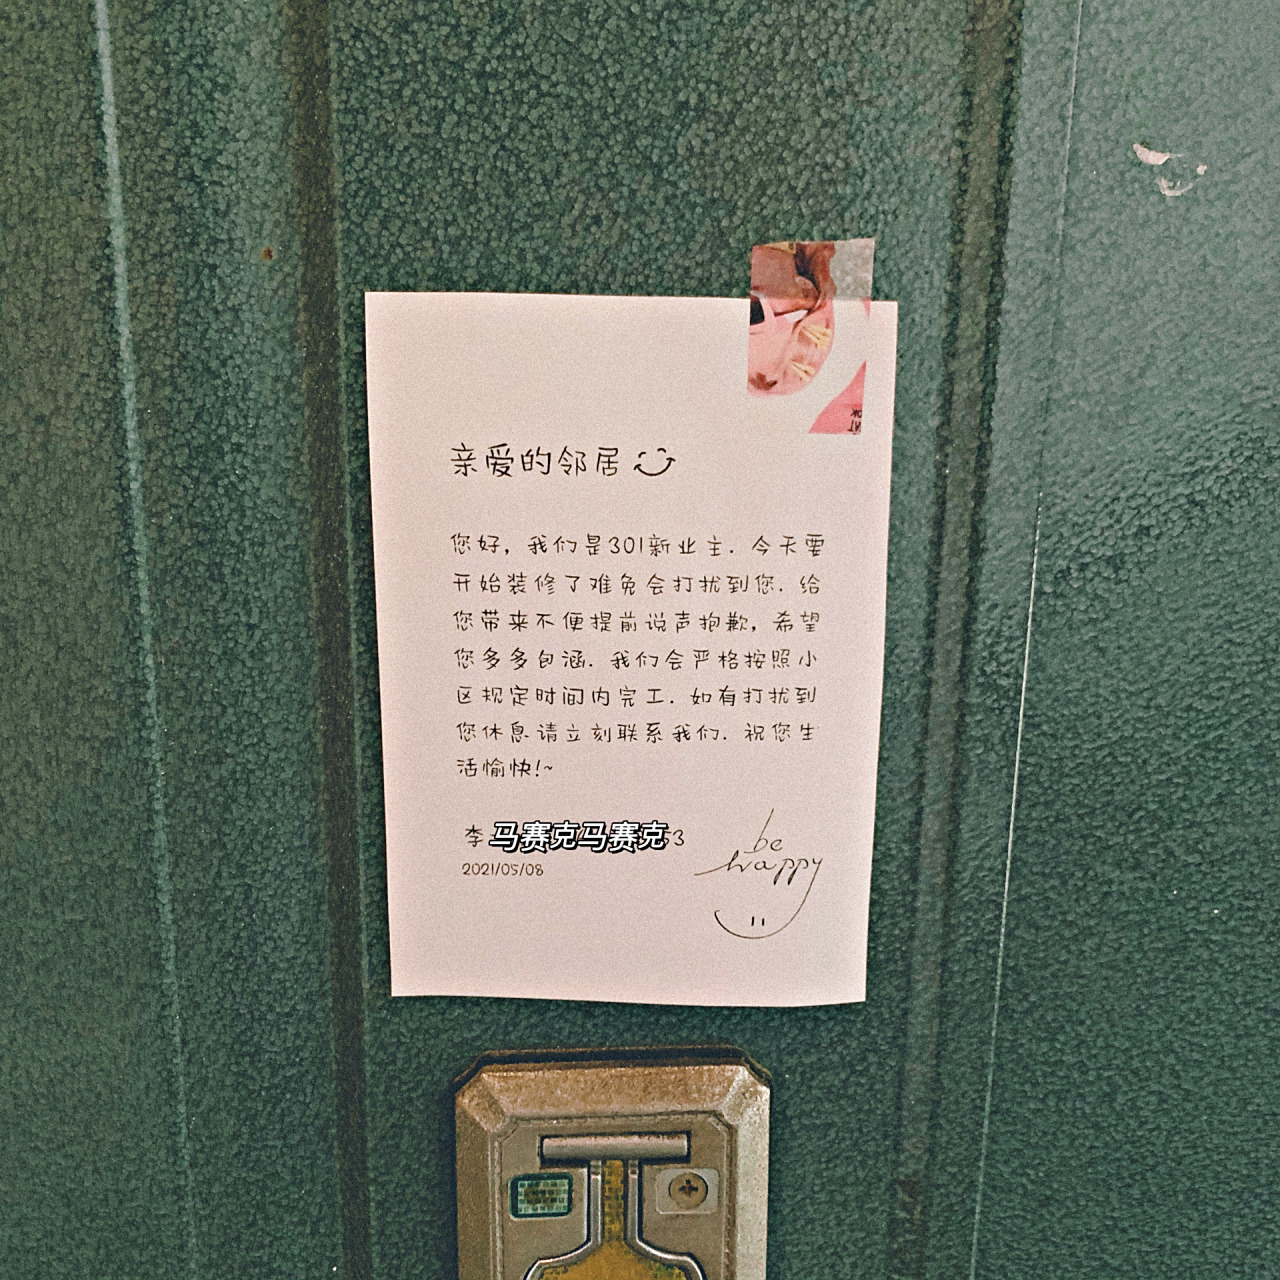 亲爱的邻居
您好，我们是301新业主. 今天要
开始装修了难免会打扰到您. 给
您带来不便提前说声抱歉，希望
您多多包涵. 我们会严格按照小
区规定时间内完工. 如有打扰到
您休息请立刻联系我们. 祝您生
活愉快!~
李 马赛克马赛克 3
2021/05/08
be
happy